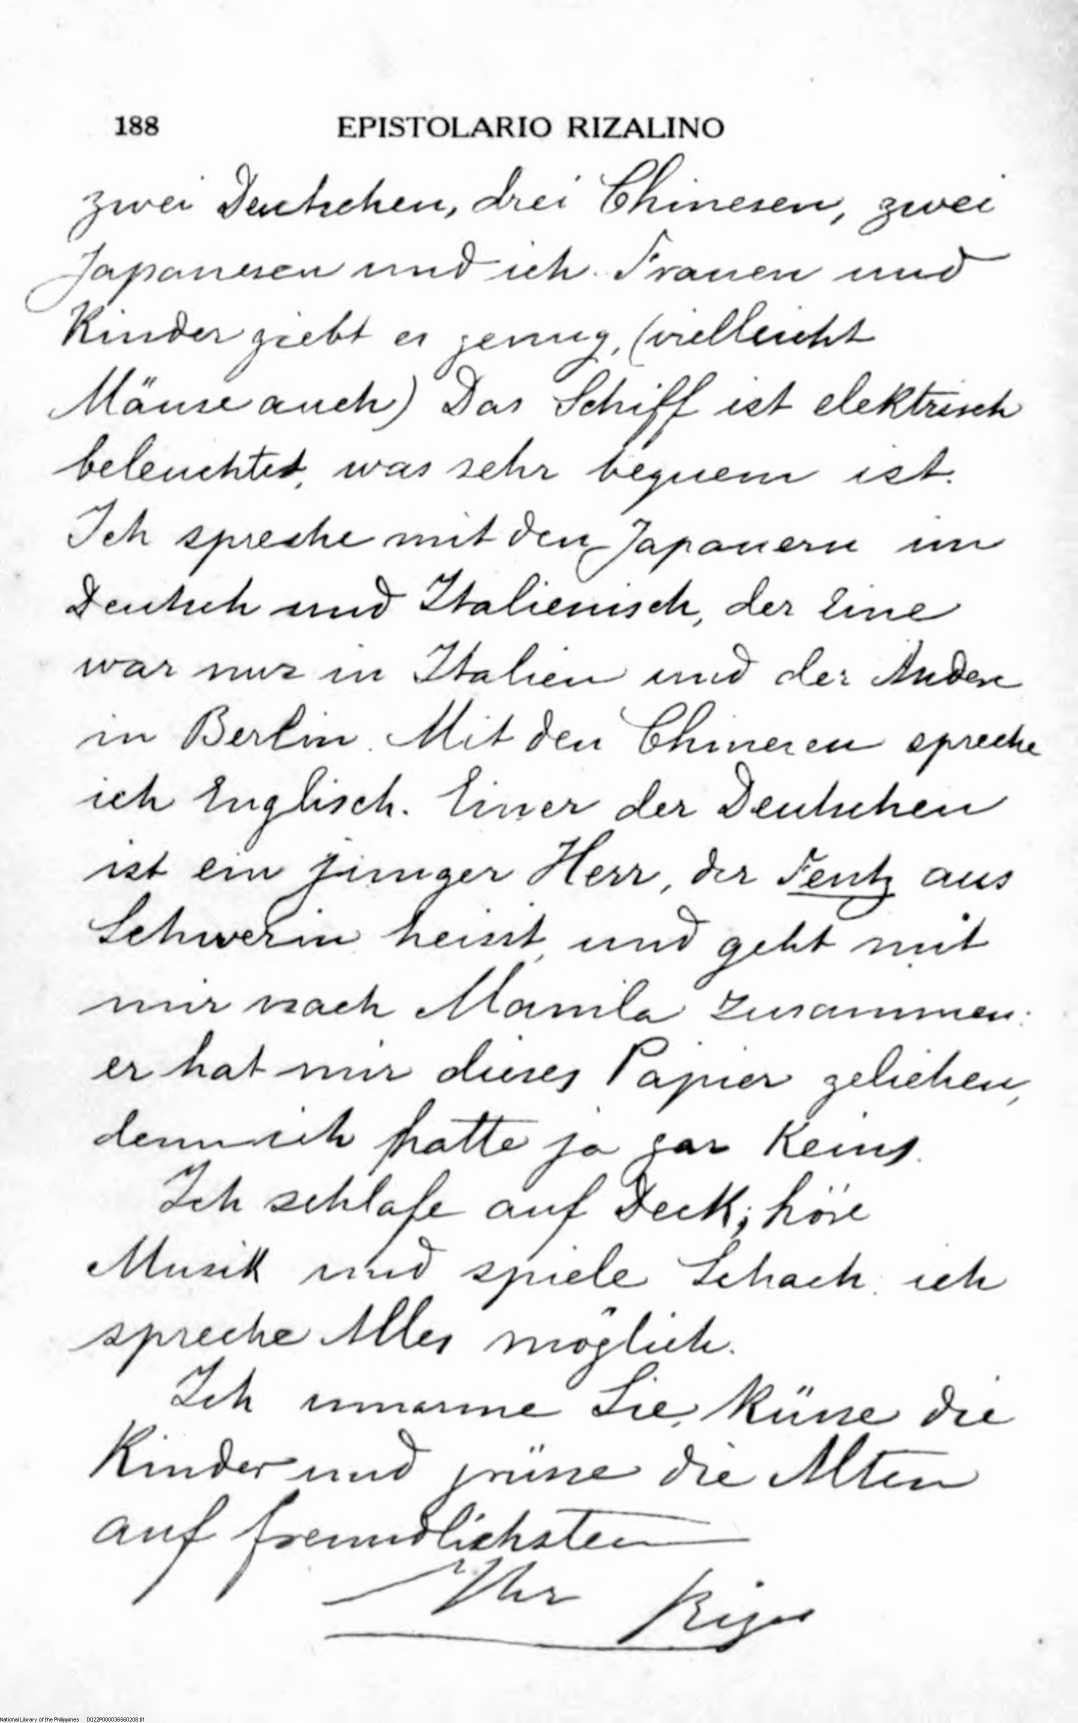 188 EPISTOLARIO RIZALINO
zwei Deutschen, drei Chinesen, zwei
Japanesen und ich. Frauen und
Kinder giebt es genug, (vielleicht
Mäuse auch) Das Schiff ist elektrisch
beleuchtet, was sehr bequem ist.
Ich spreche mit den Japanern im
Deutsch und Italienisch, der Eine
war nur in Italien und der Andere
in Berlin. Mit den Chinesen spreche
ich Englisch. Einer der Deutschen
ist ein junger Herr, der Fentz aus
Schwerin heisst, und geht mit
mir nach Manila zusammen:
er hat mir dieses Papier geliehen,
denn ich hatte ja gar Keins.
Ich schlafe auf Deck; höre
Musik und spiele Schach. ich
spreche Alles möglich.
Ich umarme Sie, Küsse die
Kinder und grüsse die Alten
auf freundlichsten
Ihr Rizal
National Library of the Philippines